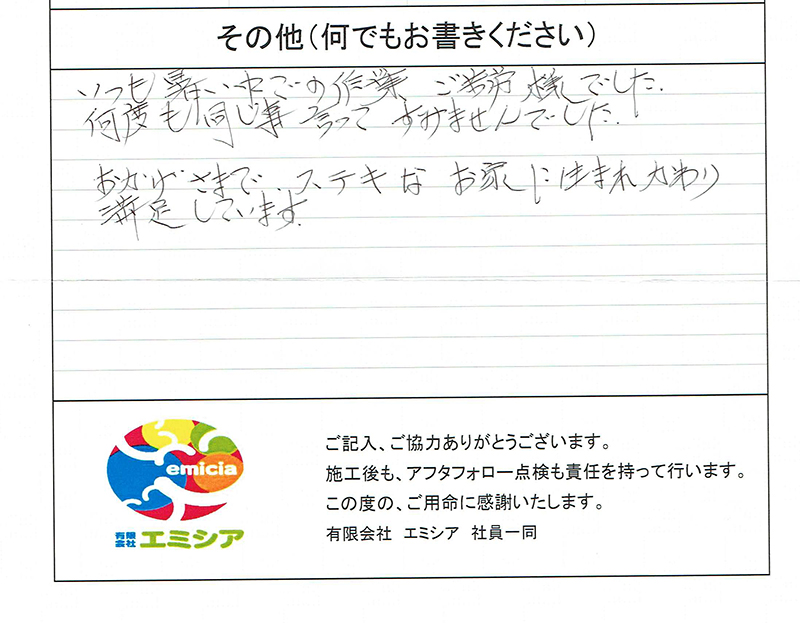 その他（何でもお書きください）
いつも暑い中での作業、ご苦労様でした.
何度も同じ事言って すみませんでした.
おかげさまで、ステキな お家に生まれかわり
満足しています.
emicia
有限会社 エミシア
ご記入、ご協力ありがとうございます。
施工後も、アフタフォロー点検も責任を持って行います。
この度の、ご用命に感謝いたします。
有限会社 エミシア 社員一同